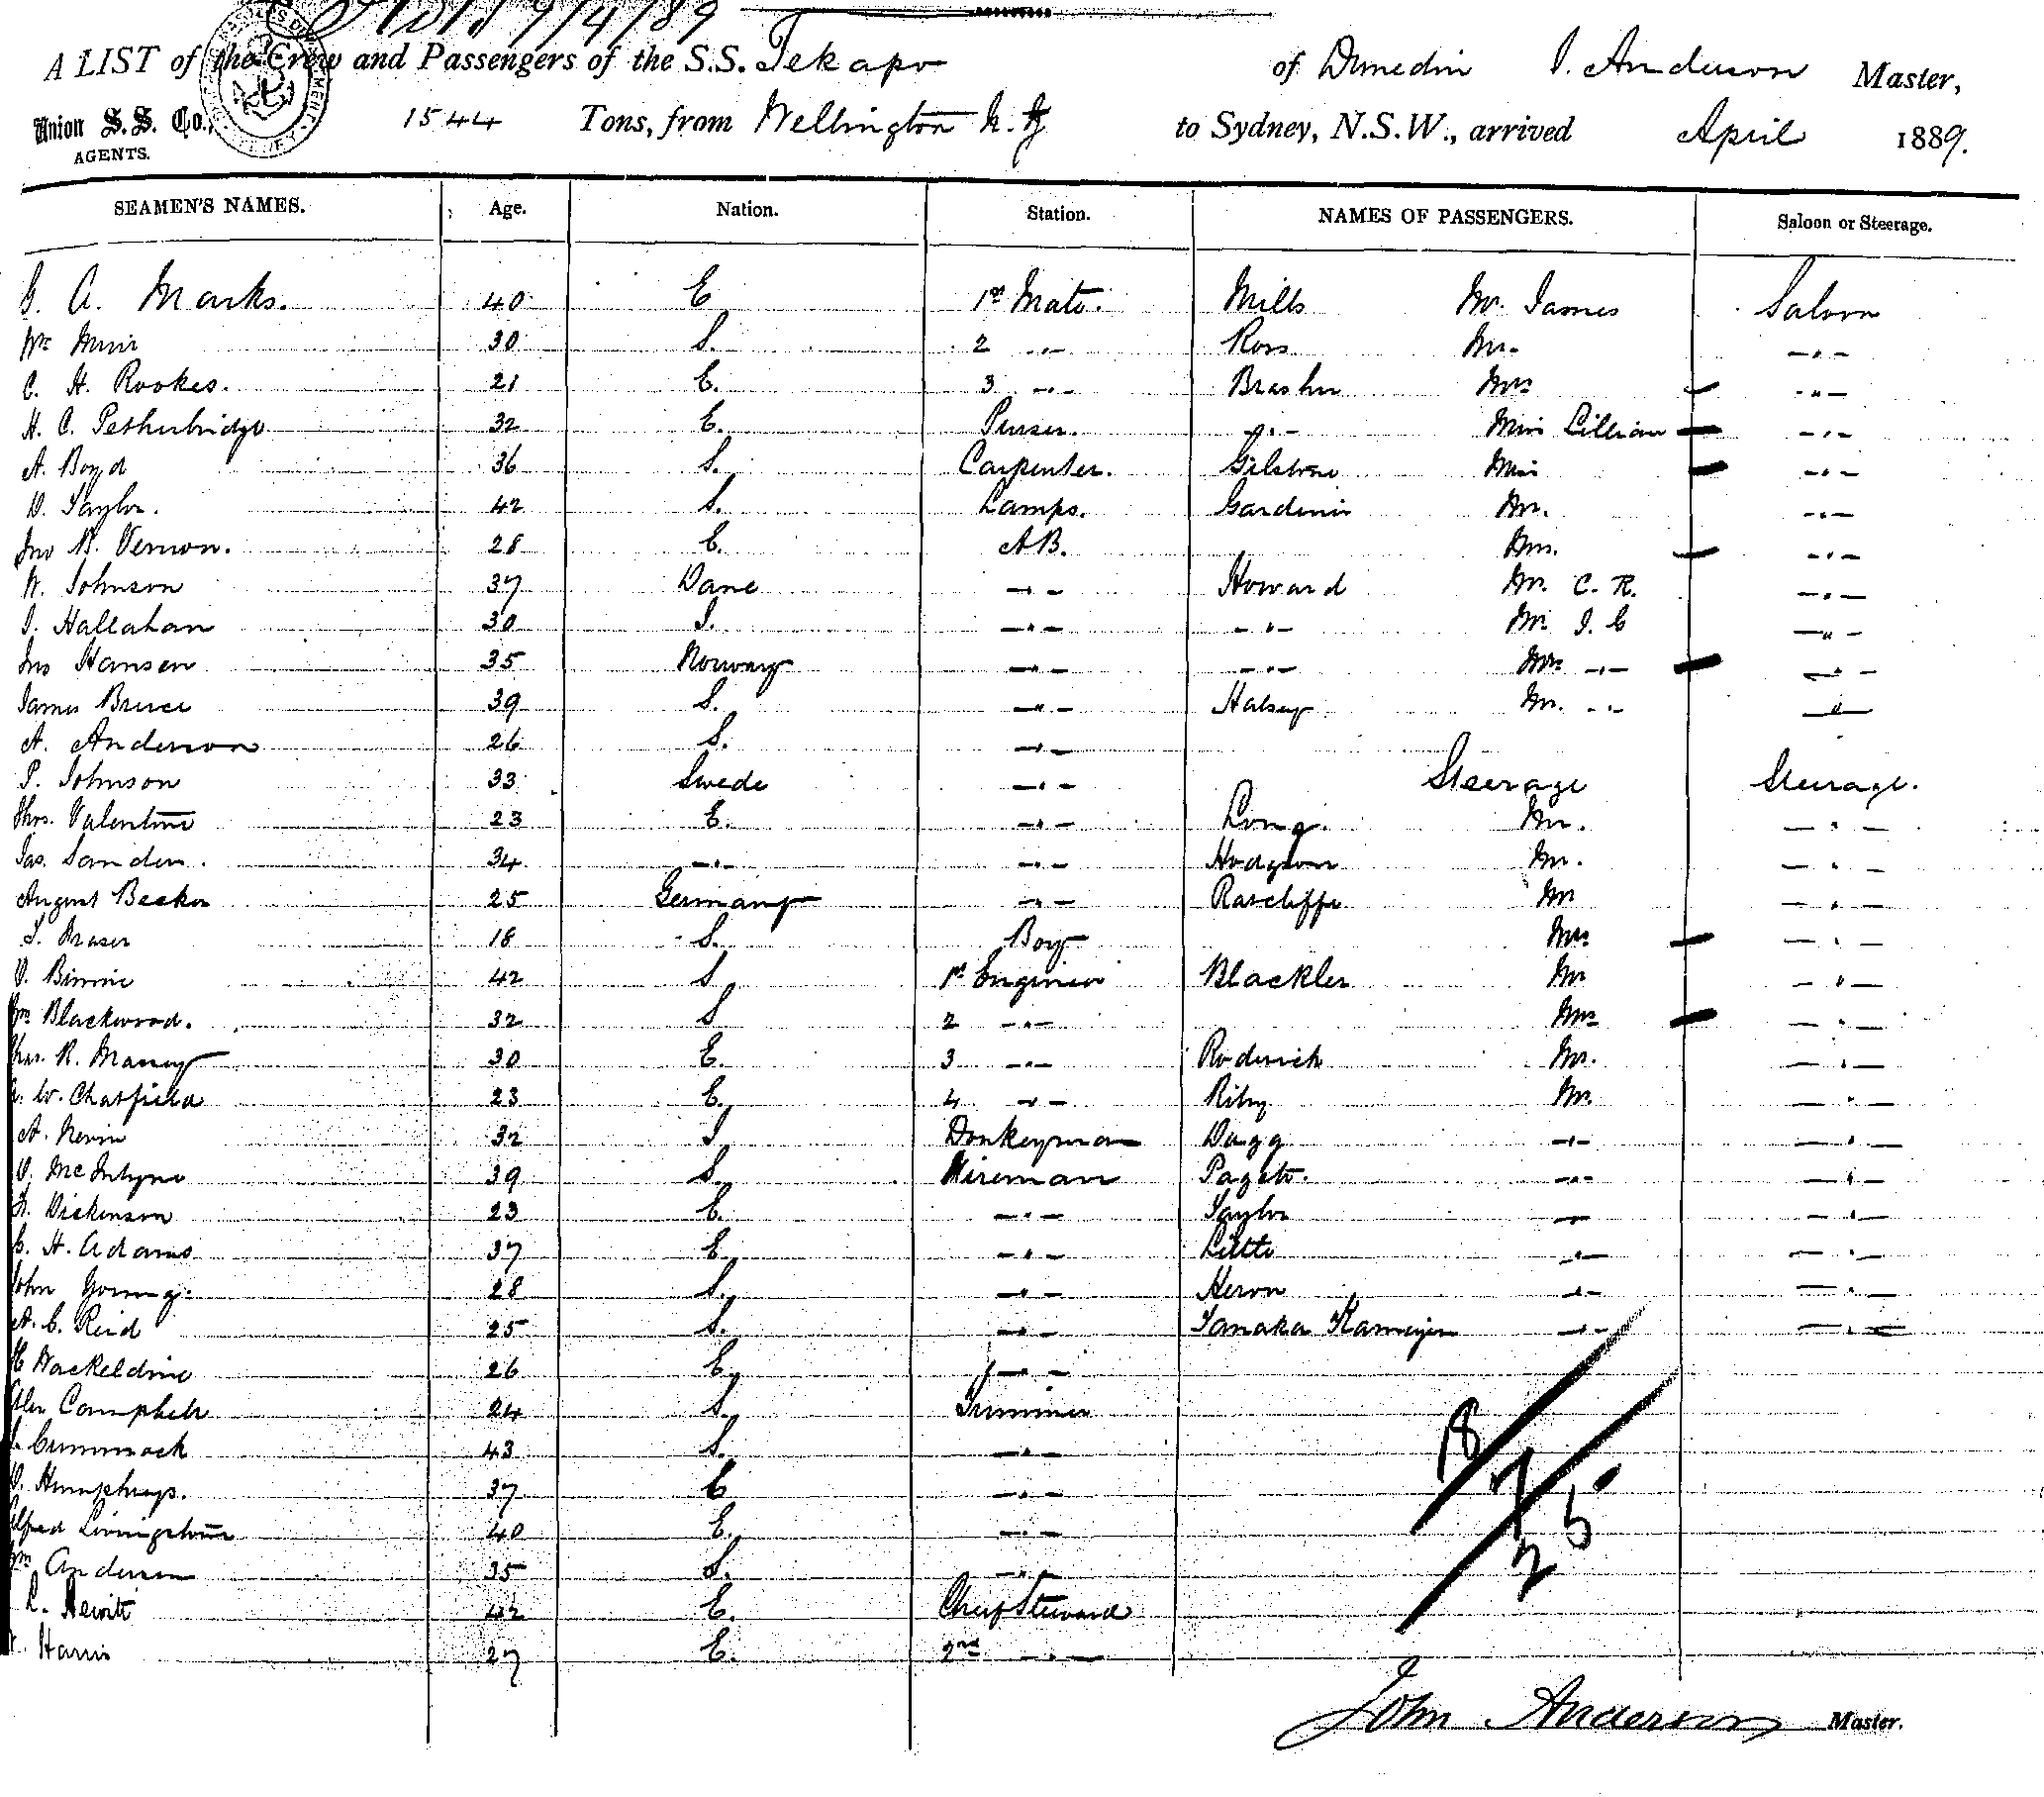 9/4/89
A LIST of the Crew and Passengers of the S.S. Tekapo of Dunedin J. Anderson Master,
Union S.S. Co., 1544 Tons, from Wellington N.Z to Sydney, N.S.W., arrived April 1889.
AGENTS.
SEAMEN'S NAMES. Age. Nation. Station. NAMES OF PASSENGERS. Saloon or Steerage.
G. A. Marks. 40 E 1st Mate. Mills Mr. James Saloon
Wm Muir 30 S. 2 -"- Ross Mr. -"-
C. H. Rookes. 21 E. 3 -"- Brasher Mrs -"-
H. C. Petherbridge 32 E. Purser. -"- Miss Lillian -"-
A. Boyd 36 S. Carpenter. Gilstone Miss -"-
D. Taylor. 42 S. Lamps. Gardiner Mr. -"-
Jno Vernon. 28 E. AB. Mrs. -"-
W. Johnson 37 Dane -"- Howard Mr. C. R. -"-
J. Hallahan 30 I. -"- -"- Mr. J. C -"-
Jns Hansen 35 Norway -"- -"- Mrs -"- -"-
James Bruce 39 S. -"- Halsey Mr. -"- -"-
A. Anderson 26 S. -"-
P. Johnson 33 Swede -"- Steerage Steerage.
Thos. Valentine 23 E. -"- Long. Mr. -"-
Jas. Sanders. 34 -"- -"- Hodgson Mr. -"-
August Becker 25 Germany -"- Ratcliffe Mr -"-
J. Fraser 18 S. Boy Mrs -"-
D. Binnie 42 S. 1st Engineer Blackler Mr -"-
Wm Blackwood. 32 S 2 -"- Mrs -"-
Chas. R. Massey 30 E. 3 -"- Roderick Mr. -"-
W. Chatfield 23 E. 4 -"- Riby Mr. -"-
A. Nevin 32 I. Donkeyman Dagg -"- -"-
D. McIntyre 39 S. Fireman Pagets. -"- -"-
Dickinson 23 E. -"- Taylor -"- -"-
C. H. Adams 37 E. -"- Little -"- -"-
John Young. 28 S. -"- Heron -"- -"-
A. C. Reid 25 S. -"- Tanaka -"- -"-
H Wackeldine 26 E. -"-
Alex Campbell 24 S. Trimmer
Cummack 43 S. -"-
D. Humphreys. 37 E -"-
Alfred Livingstone 40 E. -"-
Wm Anderson 35 S. -"-
R. Hewitt 42 E. Chief Steward
Harris 27 E. 2nd -"-
18
7
25
John Anderson Master.